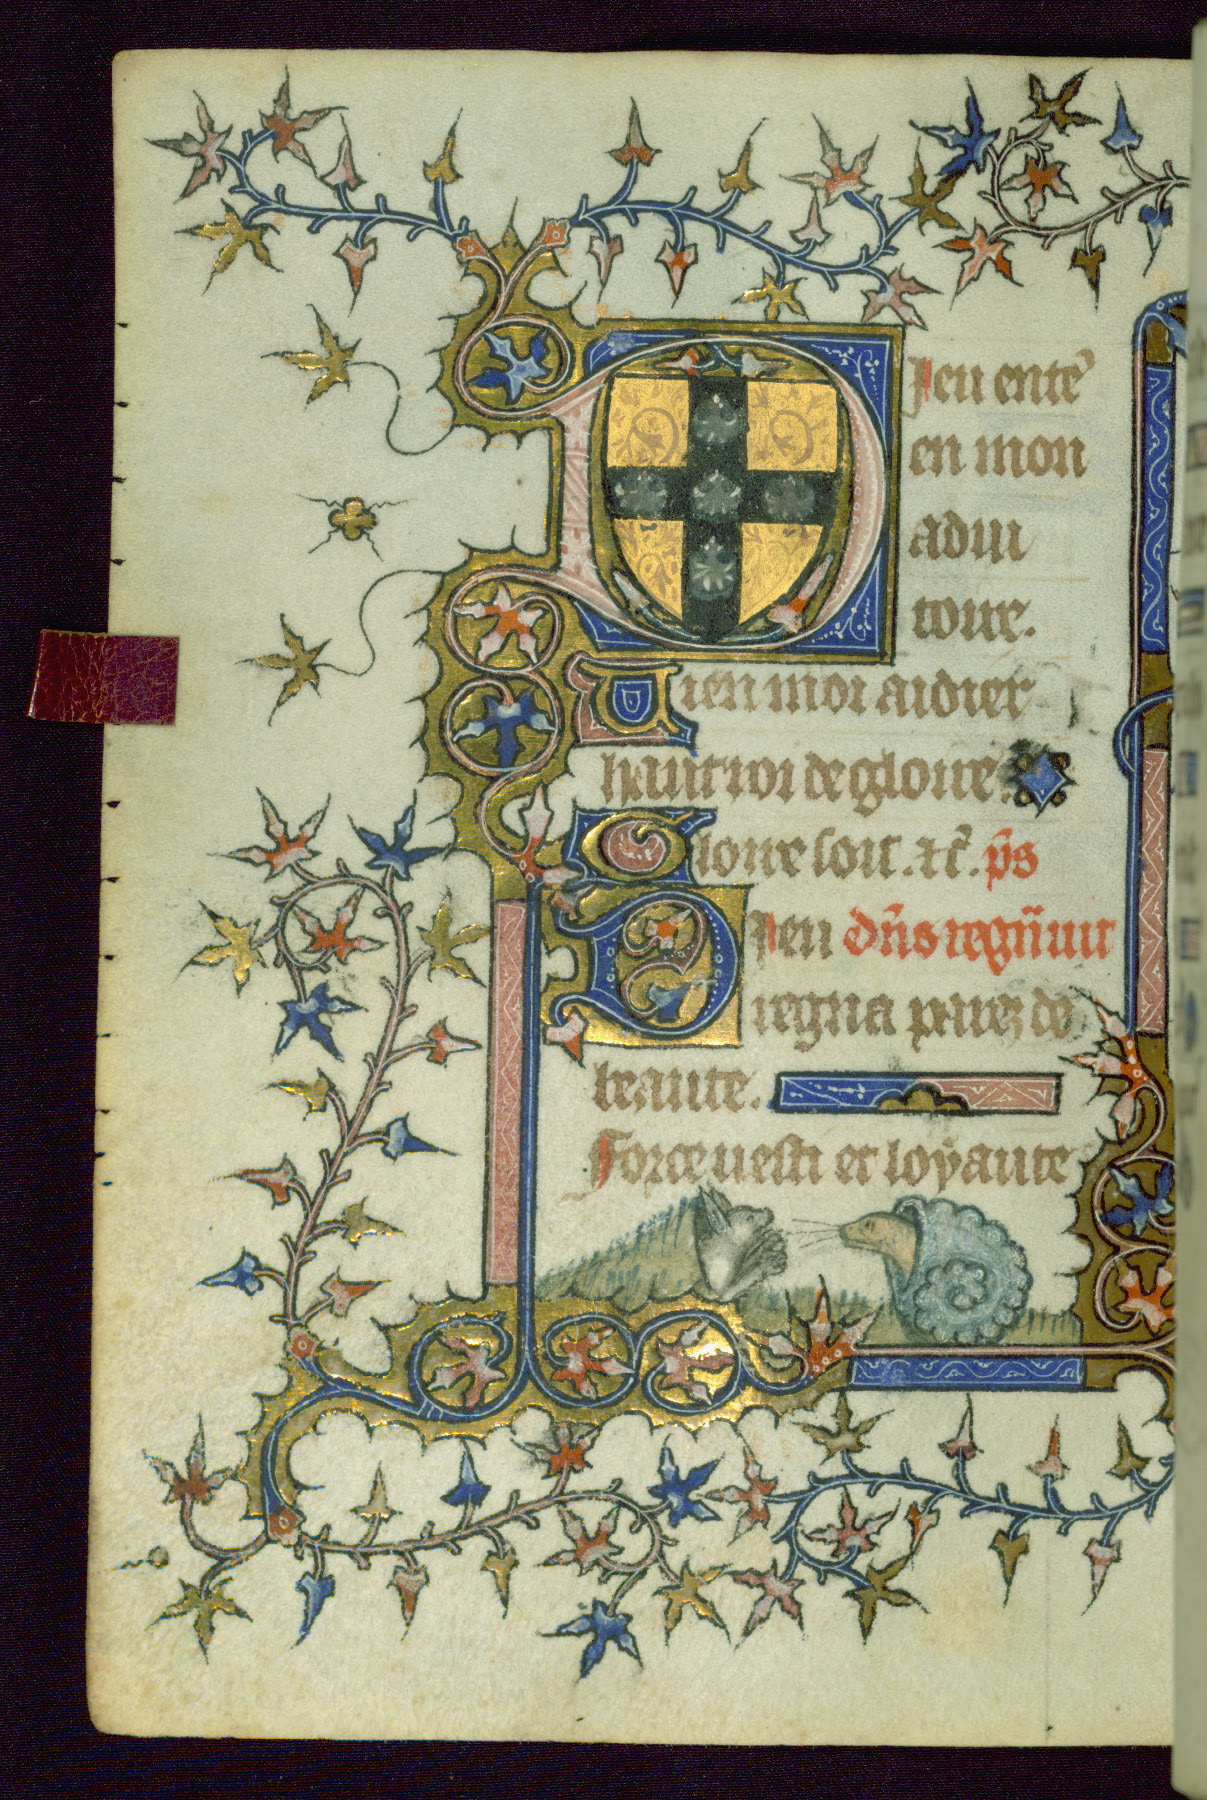 Dieu ente᾿
en mon
adiu
toire.
Uien moi aidier
haut roi de gloire.
Gloire soit. ⁊c̄. p̄s
Dieu dn̄s regn̄uit
regna parez de
beaute.
Force uesti et loyaute